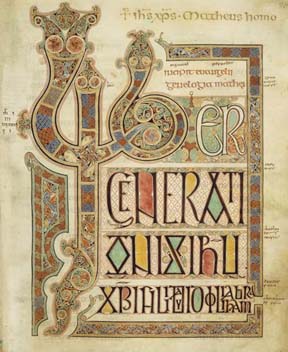 + ihs xps. Matheus homo
incipit euangelii
genelogia mathei
LIBER
GENERATI
ONIS IHU
XPI FILII DAVID FILII ABRAHAM